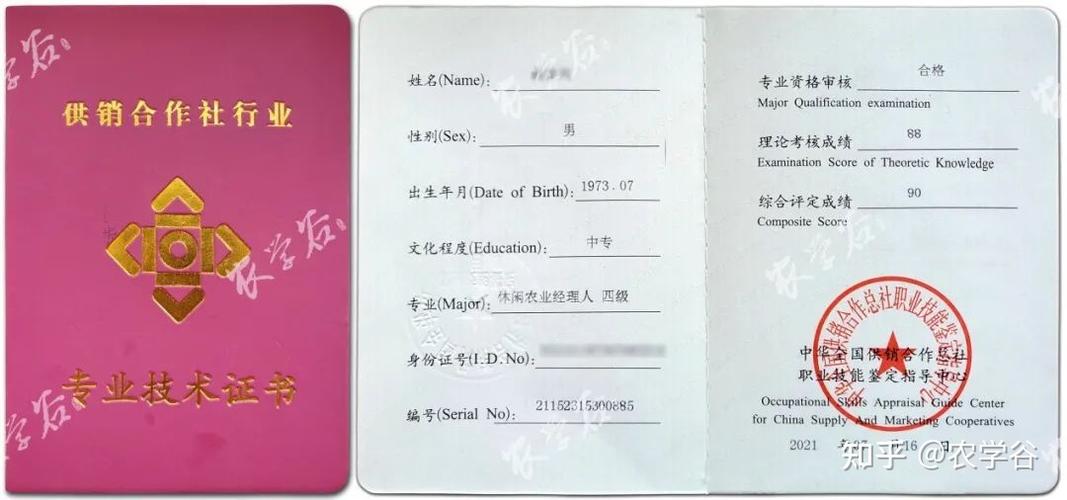 供销合作社行业
专业技术证书
姓名(Name):
性别(Sex): 男
出生年月(Date of Birth): 1973.07
文化程度(Education): 中专
专业(Major): 休闲农业经理人 四级
身份证号(I.D.No):
编号(Serial No): 21152315300885
专业资格审核 合格
Major Qualification examination
理论考核成绩 88
Examination Score of Theoretic Knowledge
综合评定成绩 90
Composite Score
中华全国供销合作总社职业技能鉴定指导中心
中华全国供销合作总社
职业技能鉴定指导中心
Occupational Skills Appraisal Guide Center
for China Supply And Marketing Cooperatives
2021 年 07 月 16 日
农学谷
农学谷
农学谷
农学谷
农学谷
农学谷
知乎 @农学谷